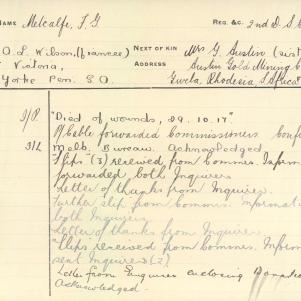 NAME Metcalfe, T. G. REG. &C. 2nd D.S.
O L. Wilson (fiancee) NEXT OF KIN Mrs. G. Austin (sist
Victoria, ADDRESS Austin Gold Mining C
Yorke Pen. S.O. Gwelo, Rhodesia, S. Africa
"Died of wounds, 29.10.17"
Cable forwarded Commissioners. Conf
Melb. Bureau. Acknowledged.
Slips (3) received from Commrs. Inform
forwarded both Inquirers
Letter of thanks from Inquirer.
Further slip from Commrs. Informati
both Inquirers
Letter of thanks from Inquirer.
"Slips received from Commrs. Inform
sent Inquirers (2)
Letter from Enquirer enclosing
Acknowledged.